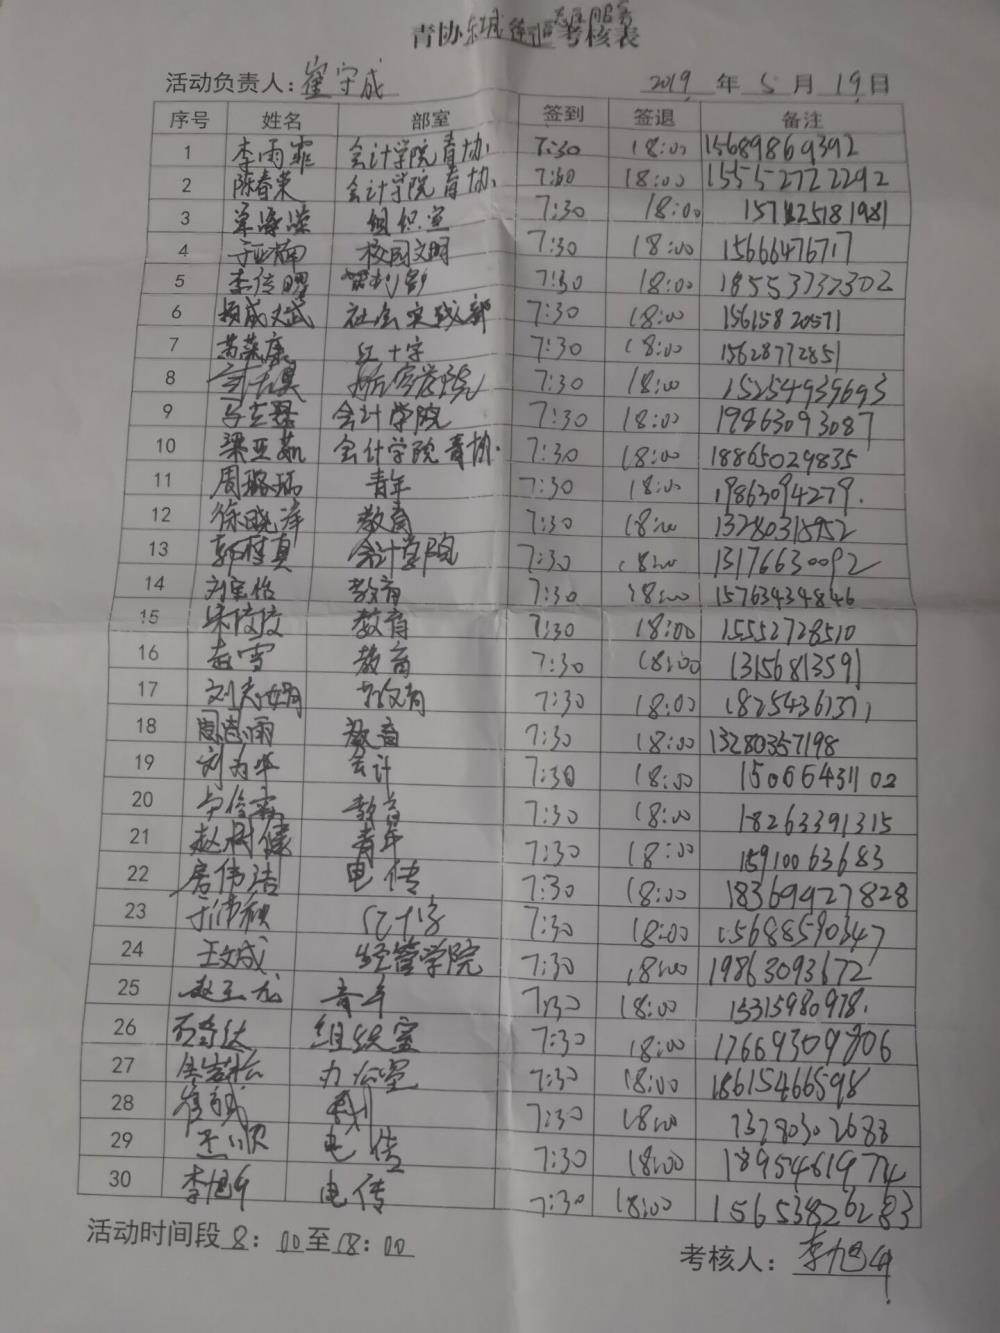 青协东城 志愿服务考核表
活动负责人：崔守成 2019 年 5 月 19 日
序号 姓名 部室 签到 签退 备注
1 李雨霏 会计学院青协 7:30 18:00 15689869392
2 陈春荣 会计学院青协 7:30 18:00 155527722292
3 组织室 7:30 18:00
4 于亚楠 校园文明 7:30 18:00 15666476717
5 李传曜 7:30 18:00 18553732302
6 社会实践部 7:30 18:00 15615820571
7 苗荣康 红十字 7:30 18:00 15628772851
8 7:30 18:00 15254939693
9 会计学院 7:30 18:00 19863093087
10 梁亚茹 会计学院青协 7:30 18:00 18865029835
11 周璐瑶 青年 7:30 18:00 19863094279
12 徐晓萍 教育 7:30 18:00
13 郭梦真 会计学院 7:30 18:00 13176630092
14 刘宝怡 教育 7:30 18:00 15763434846
15 宋皎皎 教育 7:30 18:00 15552728510
16 赵雪 教育 7:30 18:00 13156813591
17 刘志娟 教育 7:30 18:00 18254361371
18 周思雨 教育 7:30 18:00 13280357198
19 刘为华 会计 7:30 18:00 15066431102
20 教育 7:30 18:00 18263391315
21 赵树健 青年 7:30 18:00 15910063683
22 房伟洁 电传 7:30 18:00 18369427828
23 于伟硕 红十字 7:30 18:00 15688590347
24 王文成 经管学院 7:30 18:00 19863093672
25 赵玉龙 青年 7:30 18:00 15315980978
26 石奇达 组织室 7:30 18:00 17669309706
27 办公室 7:30 18:00 18615466598
28 7:30 18:00 13280302683
29 王顺 电传 7:30 18:00 18954619774
30 李旭冉 电传 7:30 18:00 15653826283
活动时间段 8：00至18：00
考核人：李旭冉